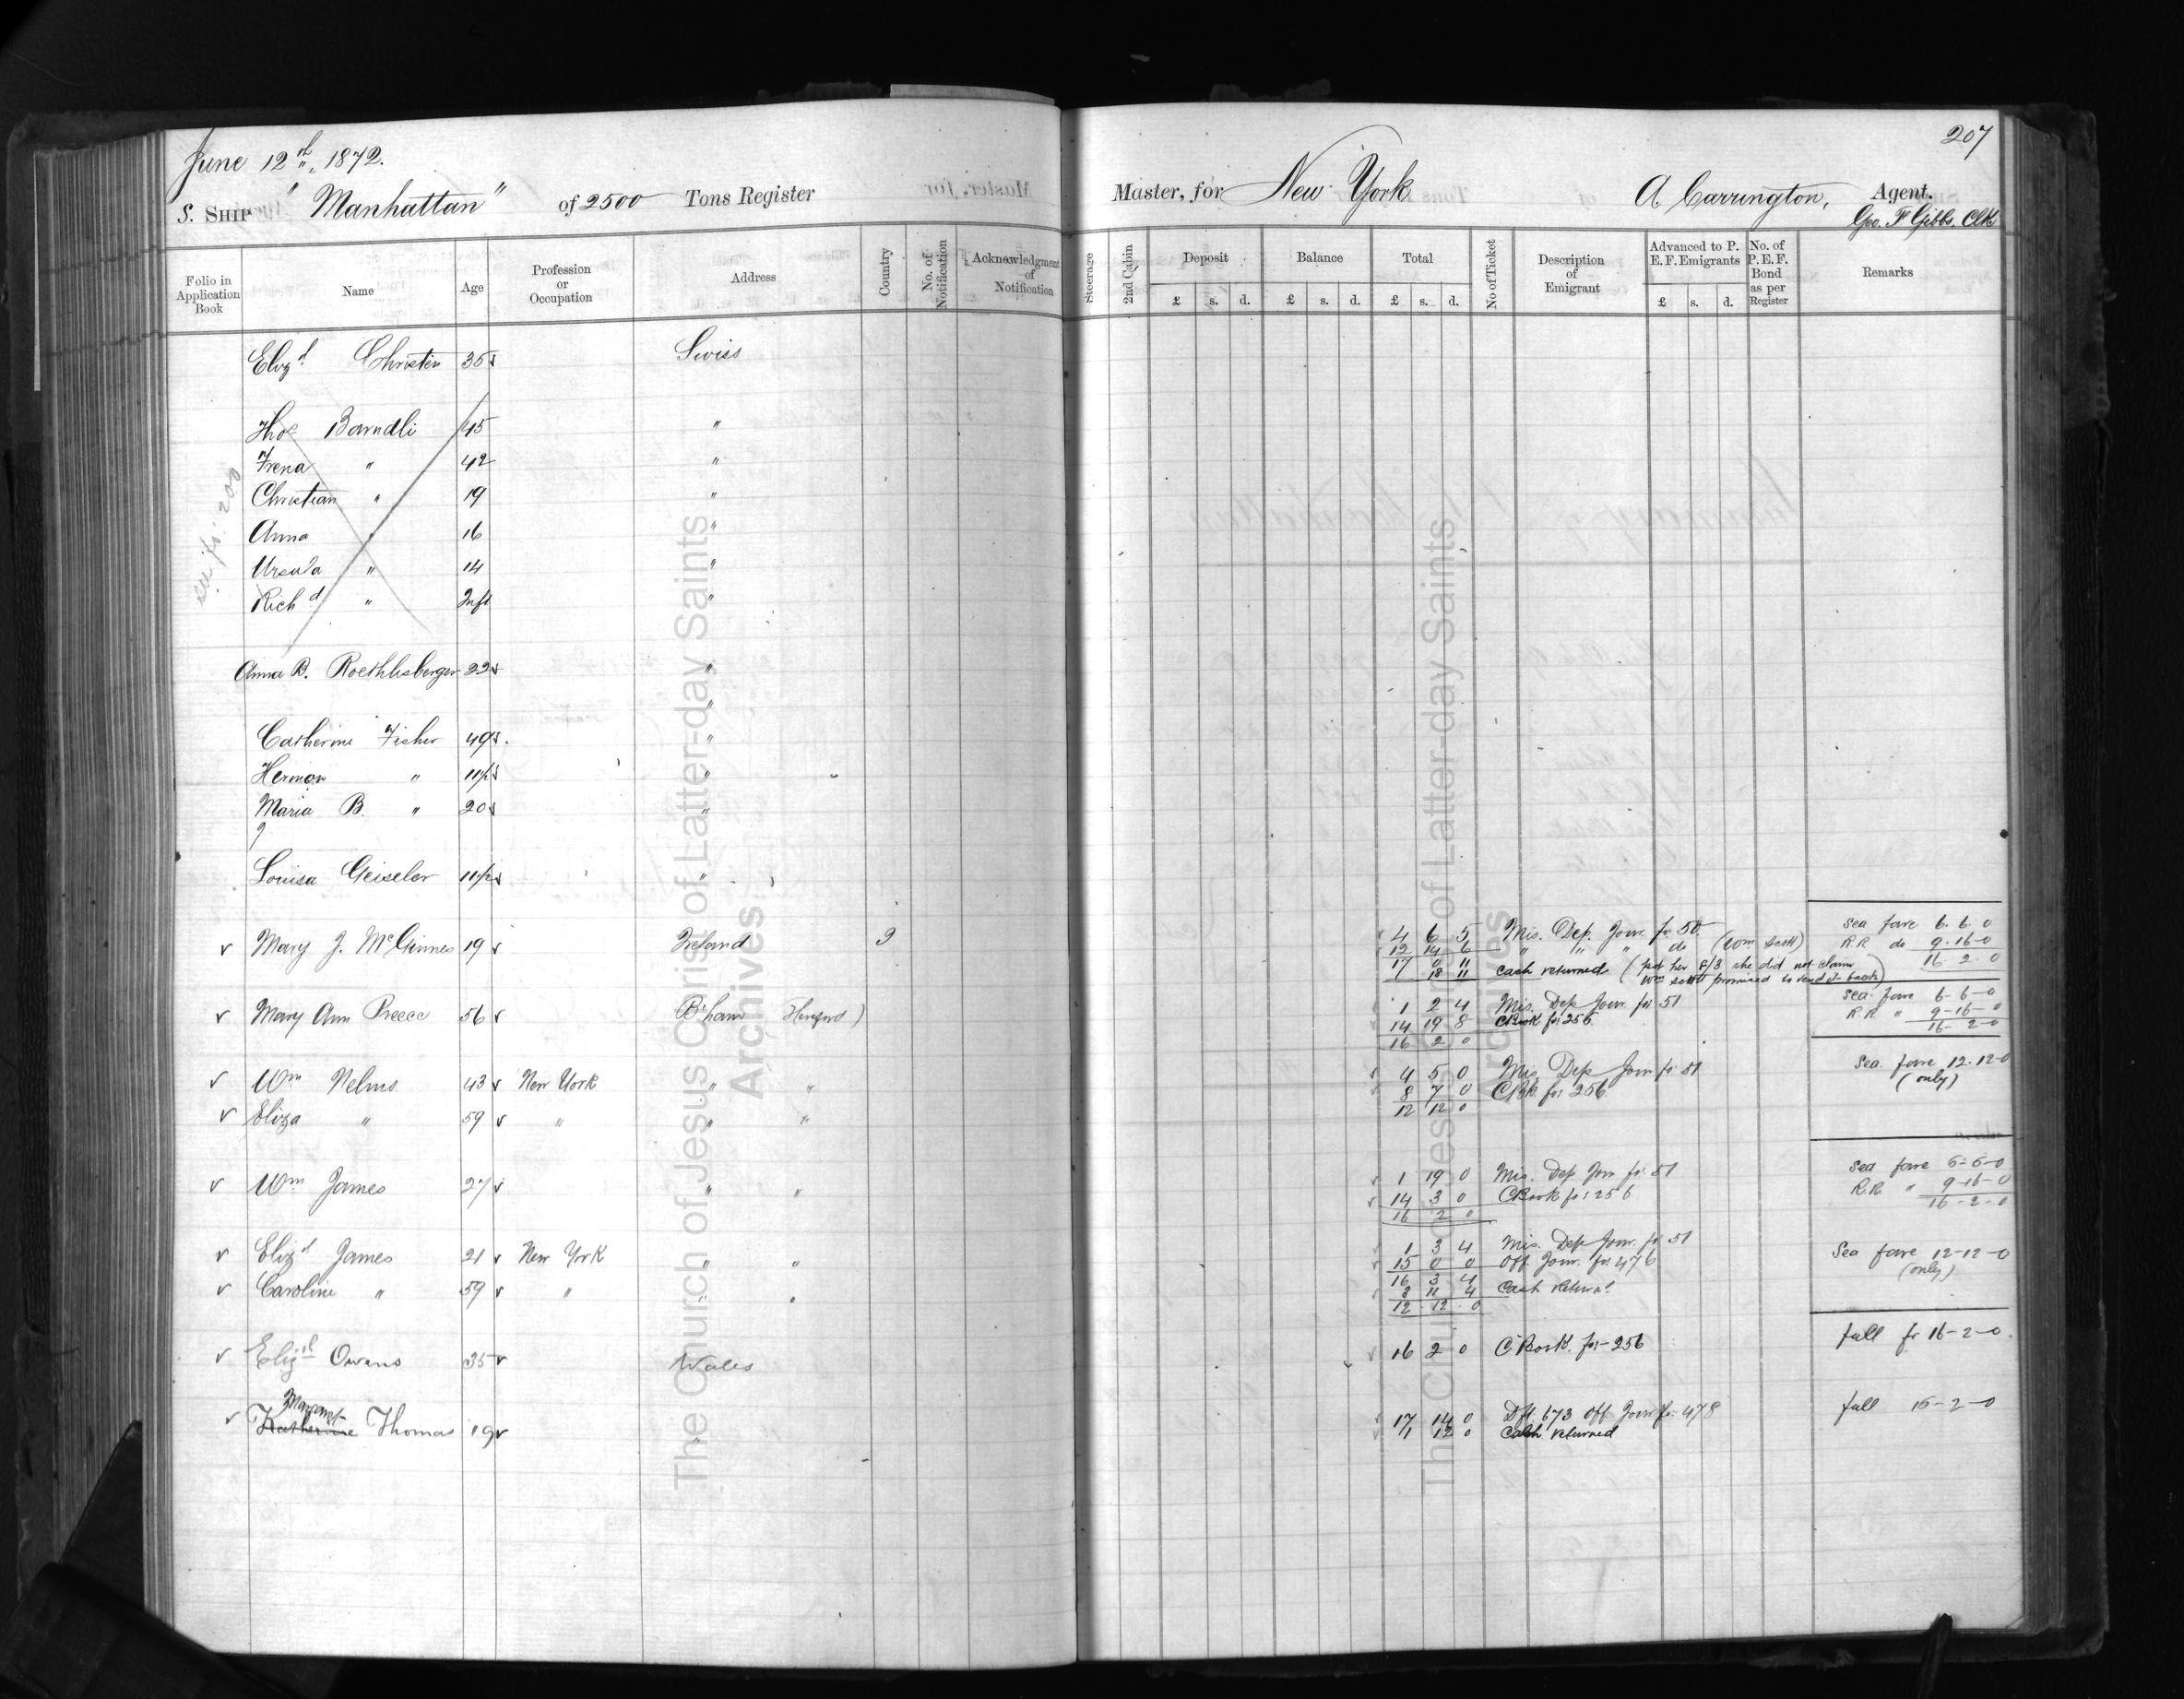 June 12th, 1872.
207
S. SHIP "Manhattan" of 2500 Tons Register
Master, for New York A Carrington, Agent.
Geo. F Gibbs, Clk
Folio in Application Book Name Age Profession or Occupation Address Country No. of Notification Acknowledgment of Notification Steerage 2nd Cabin Deposit £ s. d. Balance £ s. d. Total £ s. d. No of Ticket Description of Emigrant Advanced to P. E. F. Emigrants £ s. d. No. of P. E. F. Bond as per Register Remarks
Christen 35 Swiss
see fo: 200
Barndli 45 "
" 42 "
Christian " 19 "
Anna " 16 "
Ursula " 14 "
Richd " Inft "
Anna B. Roethlisberger 22 "
"
Catherine Fisher 49 "
Herman " 11 "
Maria B. " 20 "
Louisa Geiseler 11 "
Mary J. McGinnes 19 Ireland 9 4 6 5 Mis. Dep. Jour. fo. 50 Sea fare 6. 6. 0
12 14 6 " " " do RR do 9-16-0
17 0 11 16 2 0
18 11 cash returned (pd her 8/3 she did not claim
promised to send back)
Mary Ann Preece 56 B'ham Hereford) 1 2 4 Mis. Dep Jour. fo: 51 Sea fare 6-6-0
14 19 8 C Book fo: 256 RR " 9-16-0
16 2 0 16-2-0
Wm Nelms 43 New York " " 4 5 0 Mis. Dep Jour fo: 51 Sea fare 12-12-0
8 7 0 C Bk. fo: 256 (only)
Eliza " 59 " " " 12 12 0
Wm James 27 " " 1 19 0 Mis. Dep Jour fo: 51 Sea fare 6-6-0
14 3 0 C Book fo: 256 RR " 9-16-0
16 2 0 16-2-0
James 21 New York " " 1 3 4 Mis. Dep Jour. fo: 51 Sea fare 12-12-0
15 0 0 Off Jour. fo: 476 (only)
Caroline " 59 " " " 16 3 4
3 11 4 Cash Return'd
12 12 0
Owens 35 Wales 16 2 0 C Book. fo: 256 full fr 16-2-0
Margaret
Katherine Thomas 19 " 17 14 0 Dft 673 Off Jour fo: 478 full 16-2-0
1 12 0 Cash returned
The Church of Jesus Christ of Latter-day Saints
Archives
The Church of Jesus Christ of Latter-day Saints
Archives